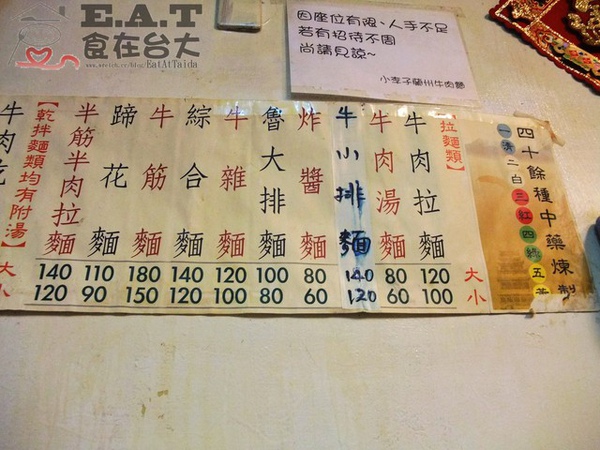 E.A.T
食在台大
www.wretch.cc/blog/EatAtTaida
因座位有限、人手不足
若有招待不周
尚請見諒~
小李子蘭州牛肉麵
四十餘種中藥煉製
一清二白三紅四綠五黃
【拉麵類】 大 小
牛肉拉麵 120 100
牛肉湯麵 80 60
牛小排麵 140 120
炸醬麵 80 60
魯大排麵 100 80
牛雜麵 120 100
綜合麵 140 120
牛筋麵 180 150
蹄花麵 110 90
半筋半肉拉麵 140 120
【乾拌麵類均有附湯】 大 小
牛肉乾